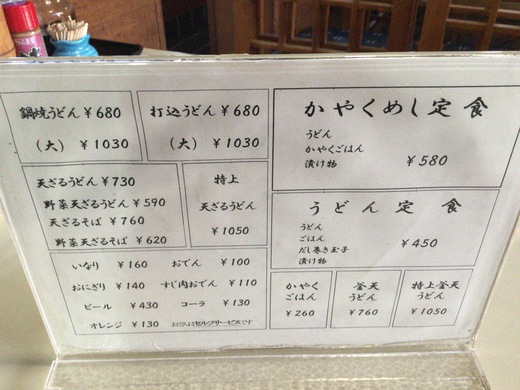 鍋焼うどん ¥680
(大) ¥1030
打込うどん ¥680
(大) ¥1030
かやくめし定食
うどん
かやくごはん
漬け物
¥580
天ざるうどん ¥730
野菜天ざるうどん ¥590
天ざるそば ¥760
野菜天ざるそば ¥620
特上
天ざるうどん
¥1050
うどん定食
うどん
ごはん
だし巻き玉子
漬け物
¥450
いなり ¥160
おでん ¥100
おにぎり ¥140
すじ肉おでん ¥110
ビール ¥430
コーラ ¥130
オレンジ ¥130
おでんはセルフサービスです
かやく
ごはん
¥260
釜天
うどん
¥760
特上釜天
うどん
¥1050